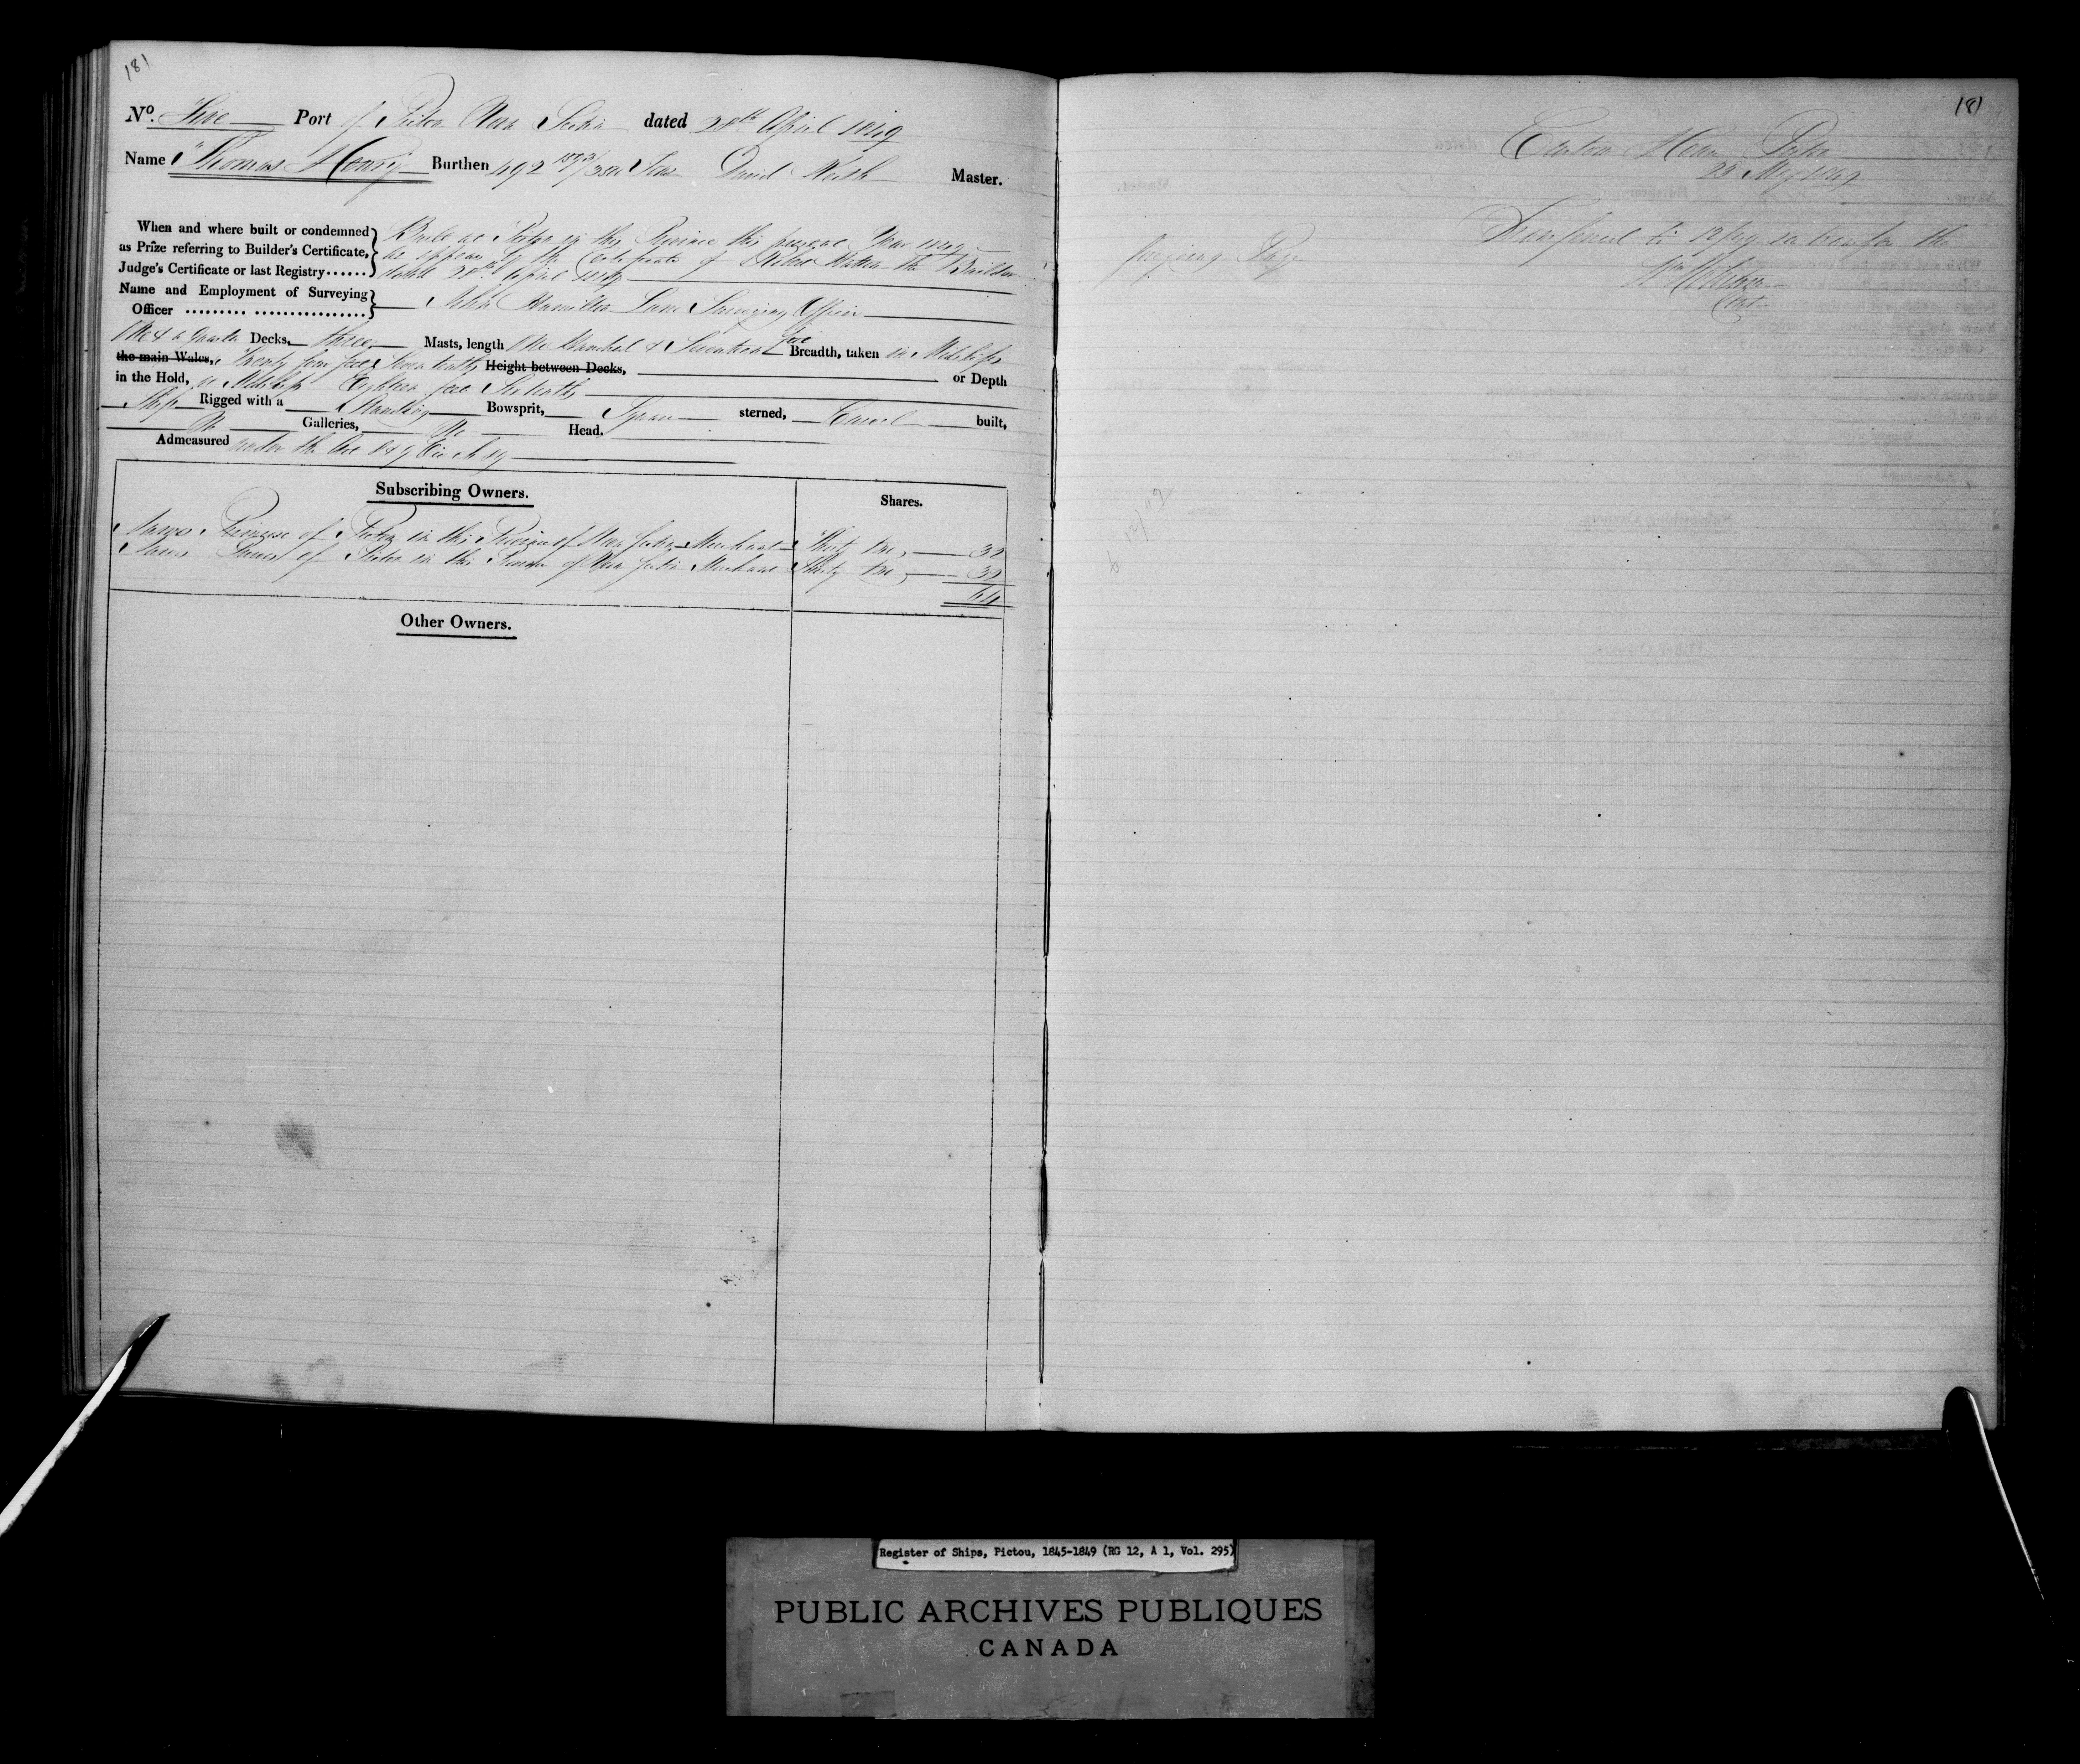 181
No. Five Port of Pictou Nova Scotia dated 28th April 1849
Name "Thomas Henry Burthen 492 Tons David Walsh Master.
When and where built or condemned
as Prize referring to Builder's Certificate,
Judge's Certificate or last Registry......
Built at Pictou in this Province this present Year 1849
as appears by the Certificate of the Builder
dated 28th April 1849
Name and Employment of Surveying
Officer ......... ................
John Hamilton Lane Surveying Officer
One & a Quarter Decks, three Masts, length One Hundred & Seventeen feet Breadth, taken in Midships
the main Wales, Twenty four feet Seven tenths Height between Decks, or Depth
in the Hold, at Midships Eighteen feet Six tenths
Ship Rigged with a Standing Bowsprit, Square sterned, Carvel built,
No Galleries, No Head.
Admeasured under the Act 8 & 9 Vic Ch 89
Subscribing Owners.
Shares.
James Primrose of Pictou in this Province of Nova Scotia Merchant Thirty two, 32
James of Pictou in this Province of Nova Scotia Merchant Thirty two, 32
64
Other Owners.
181
Custom House Pictou
28 May 1849
Register of Ships, Pictou, 1845-1849 (RG 12, A 1, Vol. 295)
PUBLIC ARCHIVES PUBLIQUES
CANADA